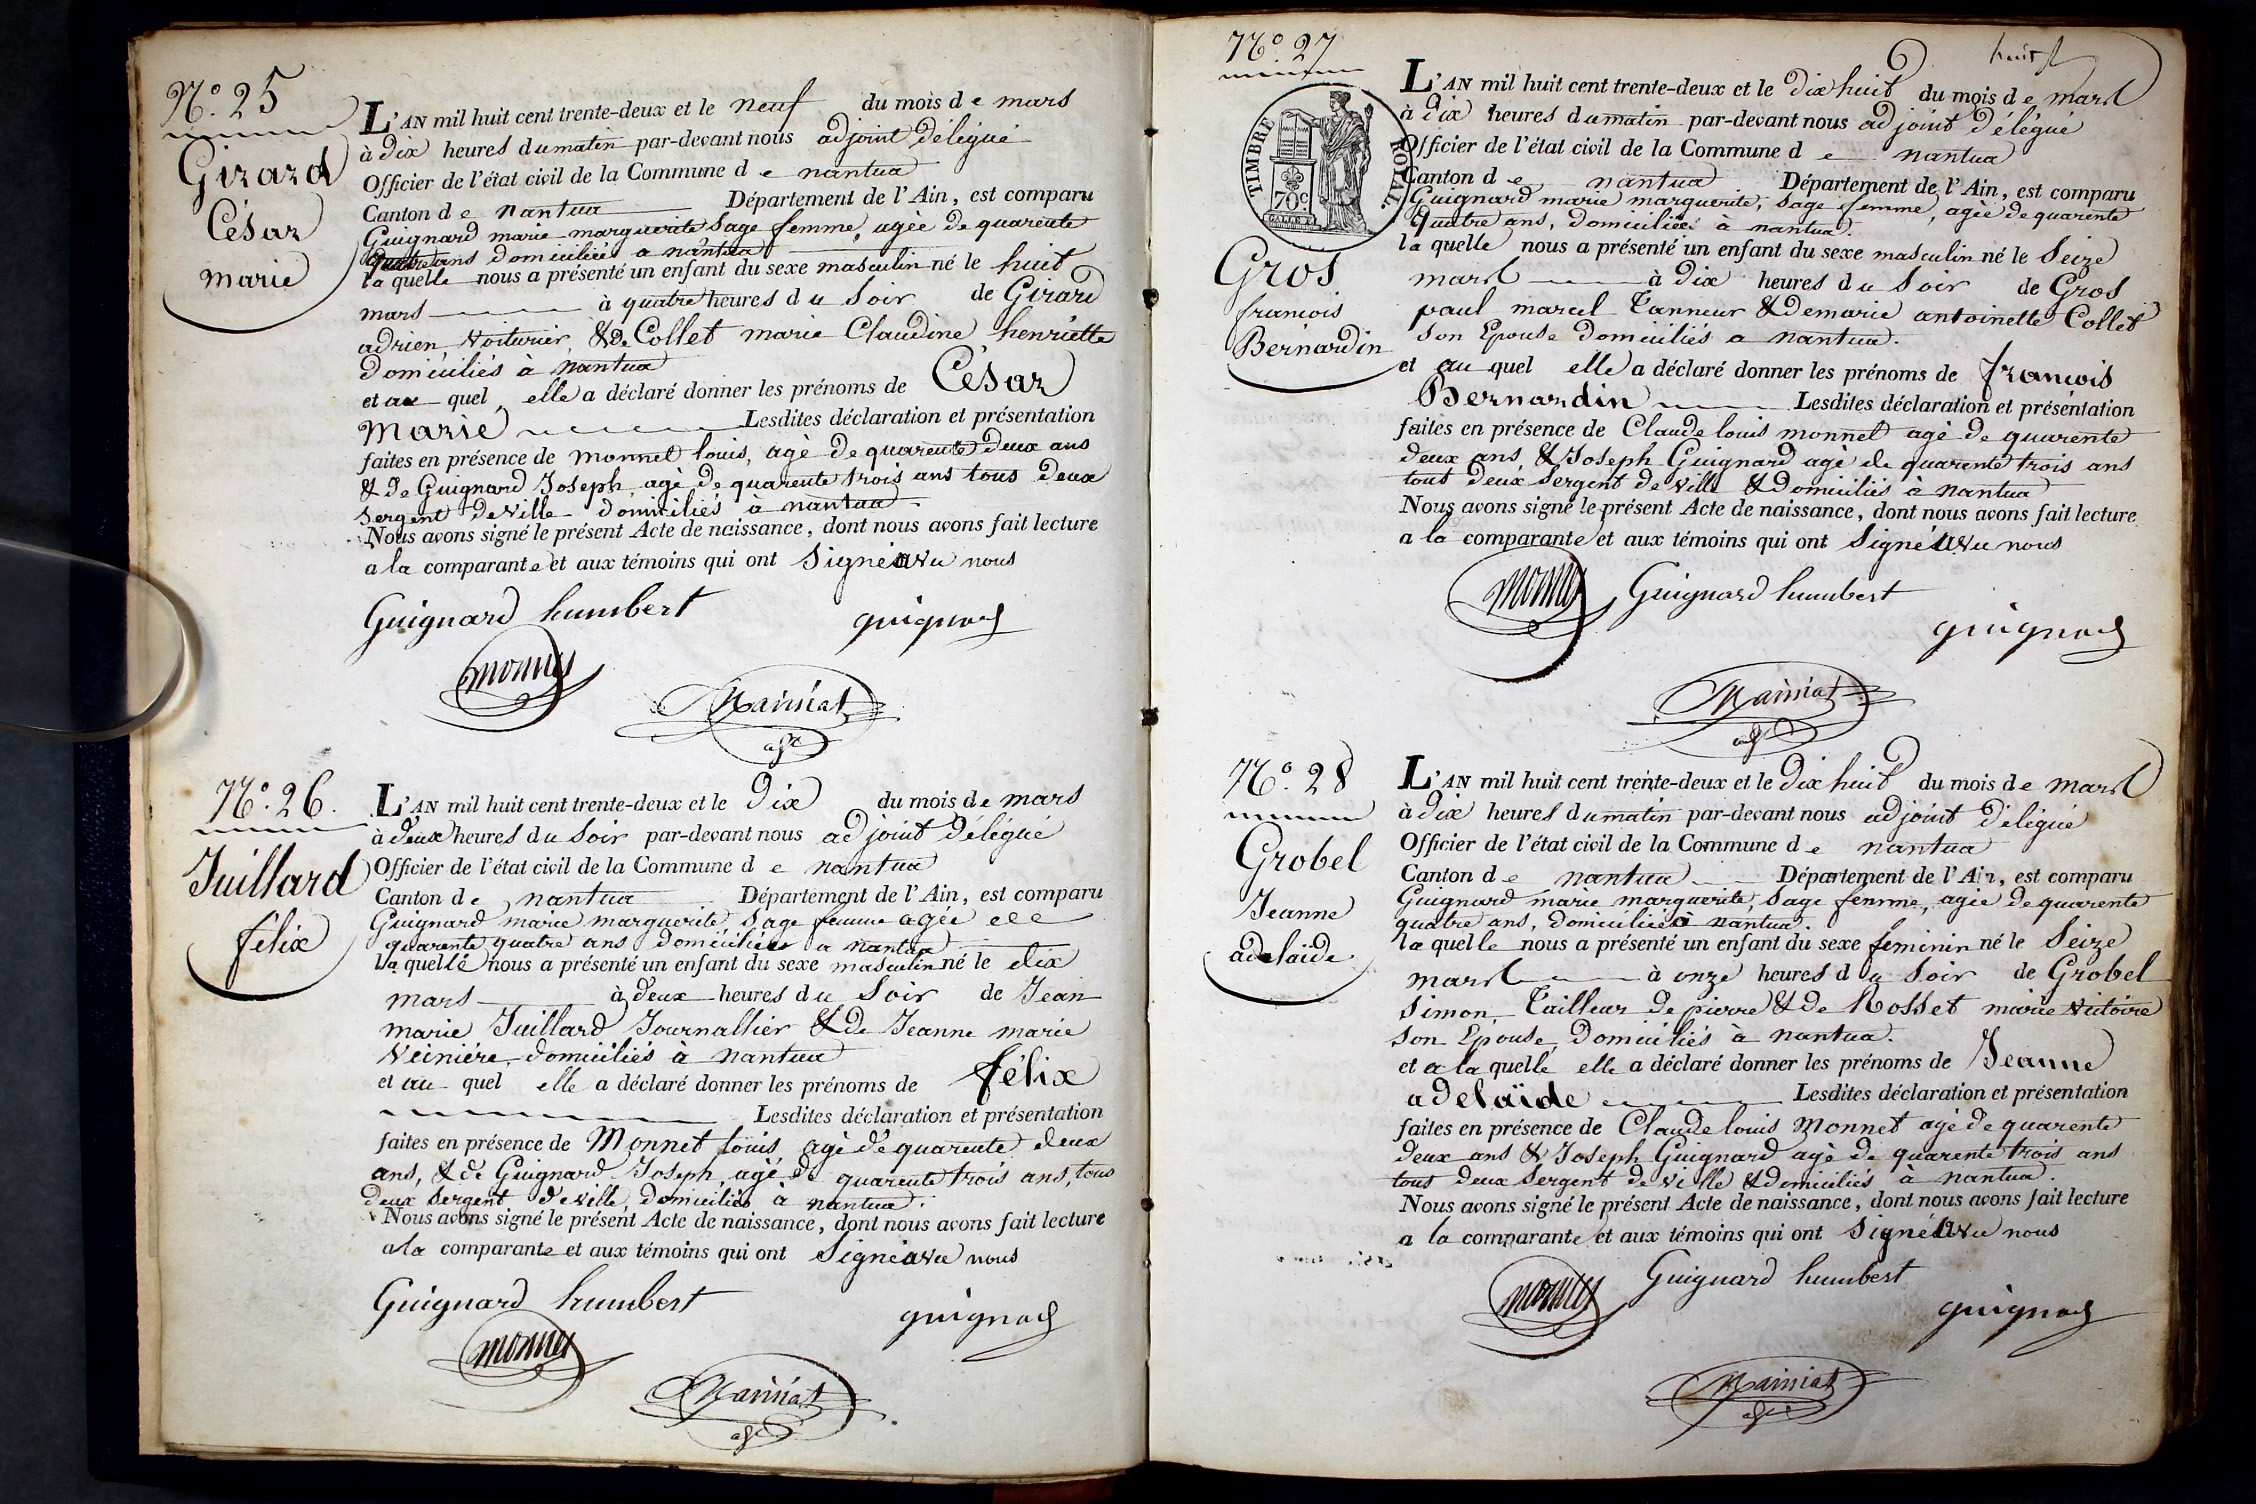 N.° 25
Girard
César
marie
L'AN mil huit cent trente-deux et le neuf du mois de mars
à dix heures du matin par-devant nous adjoint délégué
Officier de l'état civil de la Commune de nantua
Canton de nantua Département de l'Ain, est comparu
Guignard marie marguerite Sage femme, agée de quarente
quatre ans domiciliée a nantua
la quelle nous a présenté un enfant du sexe masculin né le huit
mars à quatre heures du Soir de Girard
adrien voiturier, & De Collet marie Claudine henriette
domiciliés à nantua
et au quel elle a déclaré donner les prénoms de César
marie Lesdites déclaration et présentation
faites en présence de monnet louis, agé de quarente deux ans
& de Guignard Joseph, agé de quarente trois ans tous deux
sergent de ville domiciliés à nantua
Nous avons signé le présent Acte de naissance, dont nous avons fait lecture
a la comparante et aux témoins qui ont Signé avec nous
Guignard humbert guignard
monnet
adj
N.° 26.
Juillard
félix
L'AN mil huit cent trente-deux et le Dix du mois de mars
à deux heures du Soir par-devant nous adjoint délégué
Officier de l'état civil de la Commune de nantua
Canton de nantua Département de l'Ain, est comparu
Guignard marie marguerite Sage femme agée de
quarente quatre ans domiciliée a nantua
la quelle nous a présenté un enfant du sexe masculin né le dix
mars à deux heures du Soir de Jean
marie Juillard Journallier & de Jeanne marie
domiciliés à nantua
et au quel elle a déclaré donner les prénoms de félix
Lesdites déclaration et présentation
faites en présence de Monnet louis agé de quarente deux
ans, & de Guignard Joseph, agé de quarente trois ans, tous
deux Sergent de ville, domiciliés à nantua.
Nous avons signé le présent Acte de naissance, dont nous avons fait lecture
a la comparante et aux témoins qui ont Signé avec nous
Guignard humbert guignard
monnet
adj
N.° 27
huit
TIMBRE ROYAL.
70.c
Gros
francois
Bernardin
L'AN mil huit cent trente-deux et le Dix huit du mois de mars
à Dix heures du matin par-devant nous adjoint délégué
Officier de l'état civil de la Commune de nantua
Canton de nantua Département de l'Ain, est comparu
Guignard marie marguerite, Sage femme, agée de quarente
quatre ans, domiciliée à nantua.
la quelle nous a présenté un enfant du sexe masculin né le Seize
mars à Dix heures du Soir de Gros
paul marcel Tanneur & De marie antoinette Collet
Son Epouse domiciliés a nantua.
et au quel elle a déclaré donner les prénoms de francois
Bernardin Lesdites déclaration et présentation
faites en présence de Claude louis monnet agé de quarente
deux ans, & Joseph Guignard agé de quarente trois ans
tous deux Sergent de ville & domiciliés à nantua
Nous avons signé le présent Acte de naissance, dont nous avons fait lecture
a la comparante et aux témoins qui ont Signé avec nous
monnet Guignard humbert
guignard
adj
N.° 28
Grobel
Jeanne
adelaide
L'AN mil huit cent trente-deux et le Dix huit du mois de mars
à Dix heures du matin par-devant nous adjoint délégué
Officier de l'état civil de la Commune de nantua
Canton de nantua Département de l'Ain, est comparu
Guignard marie marguerite, Sage femme, agée de quarente
quatre ans, domiciliée à nantua.
la quelle nous a présenté un enfant du sexe feminin né le Seize
mars à onze heures du Soir de Grobel
Simon, Tailleur de pierre & de Rosset marie victoire
Son Epouse, Domiciliés à nantua.
et a la quelle elle a déclaré donner les prénoms de Jeanne
adelaïde Lesdites déclaration et présentation
faites en présence de Claude louis Monnet agé de quarente
deux ans & Joseph Guignard agé de quarente trois ans
tous deux Sergent de ville & domiciliés à nantua.
Nous avons signé le présent Acte de naissance, dont nous avons fait lecture
a la comparante et aux témoins qui ont Signé avec nous
monnet Guignard humbert
guignard
adj